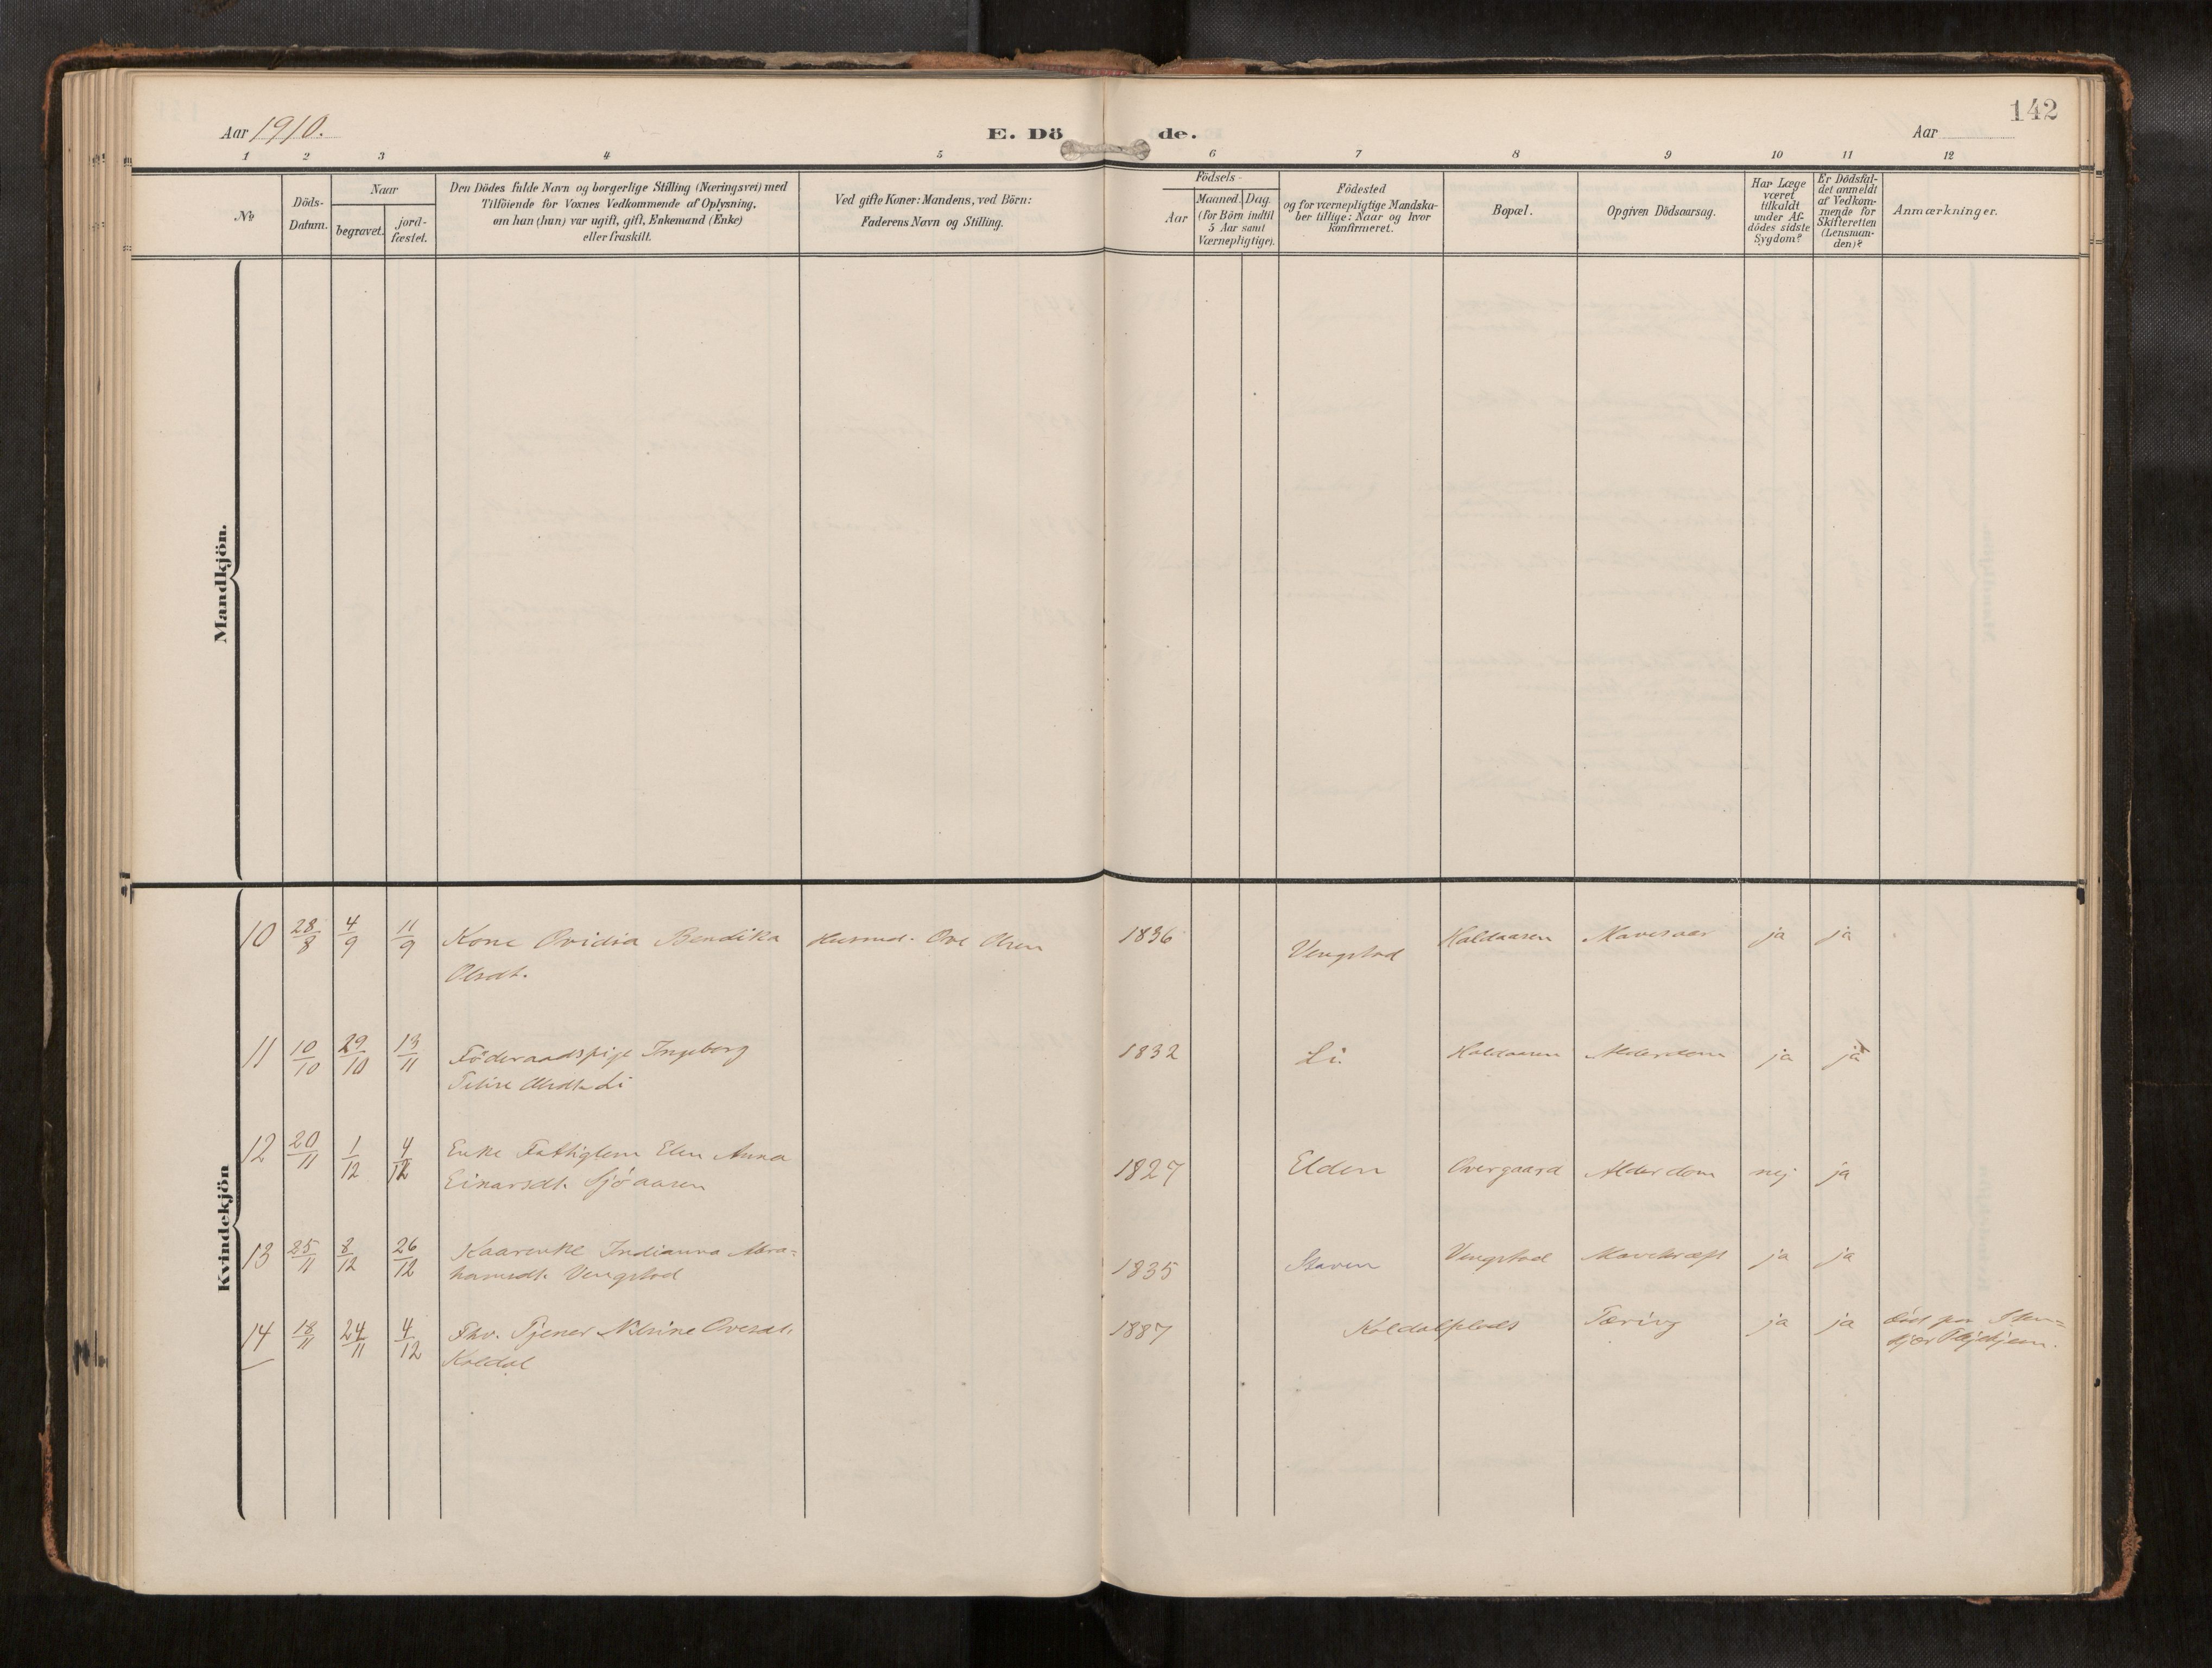 142
Aar 1910.
E. Dö de.
Aar
1 2 3 4 5 6 7 8 9 10 11 12
No
Döds-
Datum.
Naar
begravet.
jord-
fæstet.
Den Dödes fulde Navn og borgerlige Stilling (Næringsvei) med
Tilföiende for Voxnes Vedkommende af Oplysning,
om han (hun) var ugift, gift, Enkemand (Enke)
eller fraskilt.
Ved gifte Koner: Mandens, ved Börn:
Faderens Navn og Stilling.
Födsels-
Aar
Maaned. Dag.
(for Börn indtil
5 Aar samt
Værnepligtige).
Födested
og for værnepligtige Mandska-
ber tillige: Naar og hvor
konfirmeret.
Bopæl.
Opgiven Dödsaarsag.
Har Læge
været
tilkaldt
under Af-
dödes sidste
Sygdom?
Er Dödsfal-
det anmeldt
af Vedkom-
mende for
Skifteretten
(Lensman-
den)?
Anmærkninger.
Mandkjön.
Kvindekjön
10 28/8 4/9 11/9 Kone Ovidia Bendika Husmd. Ove Olsen 1836 Vengstad Haldaasen Mavesaar ja ja
Olsdt.
11 10/10 29/10 13/11 Föderaadspige Ingeborg 1832 Li. Haldaasen Alderdom ja ja
Olsdt. Li
12 20/11 1/12 4/12 Enke Fattiglem Elen Anna
Einarsdt. Sjöaasen 1827 Elden Overgaard Alderdom nej ja
13 25/11 8/12 26/12 Kaarenke Indianna Abra=
hamsdt. Vengstad 1835 Staven Vengstad Mavekræft ja ja
14 18/11 24/11 4/12 Fhv. Tjener Nelsine Ovesdt. 1887 Koldalsplads Tæring ja ja död paa Sten=
Koldal
kjær Plejehjem.